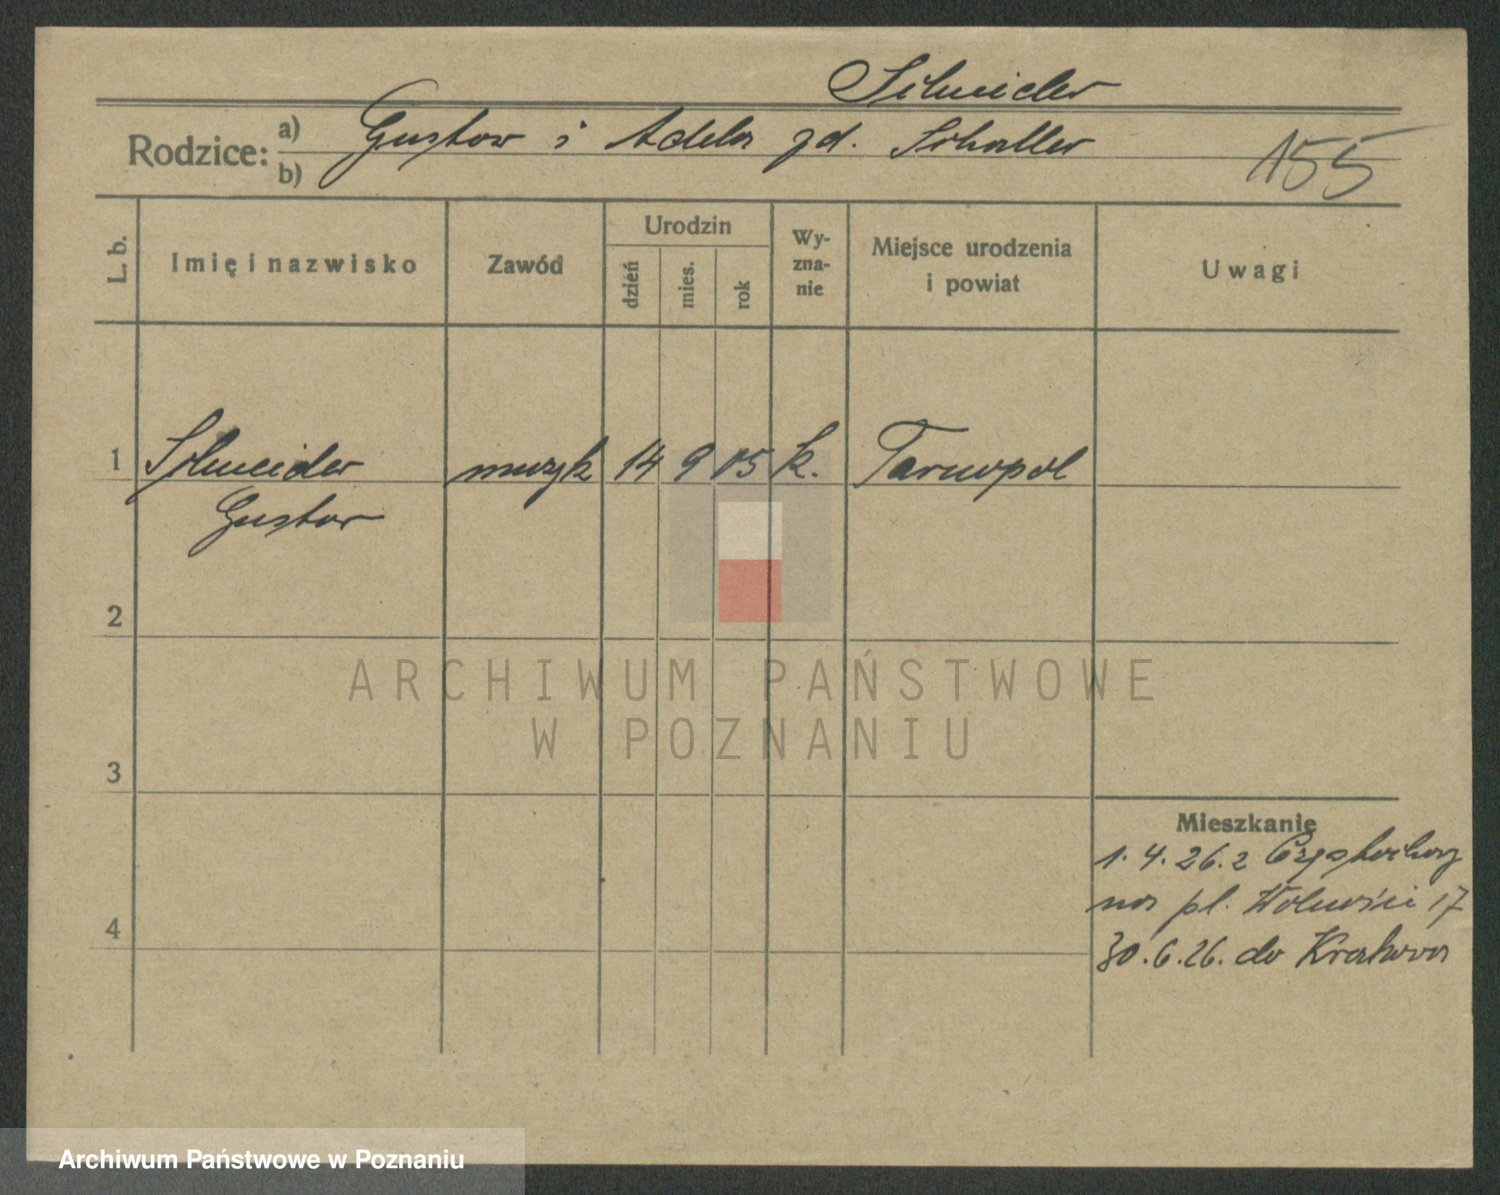 Schneider
Rodzice: a) Gustaw i Adela zd. Schaller
b)
155
L. b.
Imię i nazwisko
Zawód
Urodzin
dzień
mies.
rok
Wy-
zna-
nie
Miejsce urodzenia
i powiat
Uwagi
1 Schneider muzyk 14 9 05 k. Tarnopol
Gustaw
2
3
4
Mieszkanie
1. 4. 26. z Częstochowy
na pl. Wolności 17
30. 6. 26. do Krakowa
ARCHIWUM PAŃSTWOWE
W POZNANIU
Archiwum Państwowe w Poznaniu